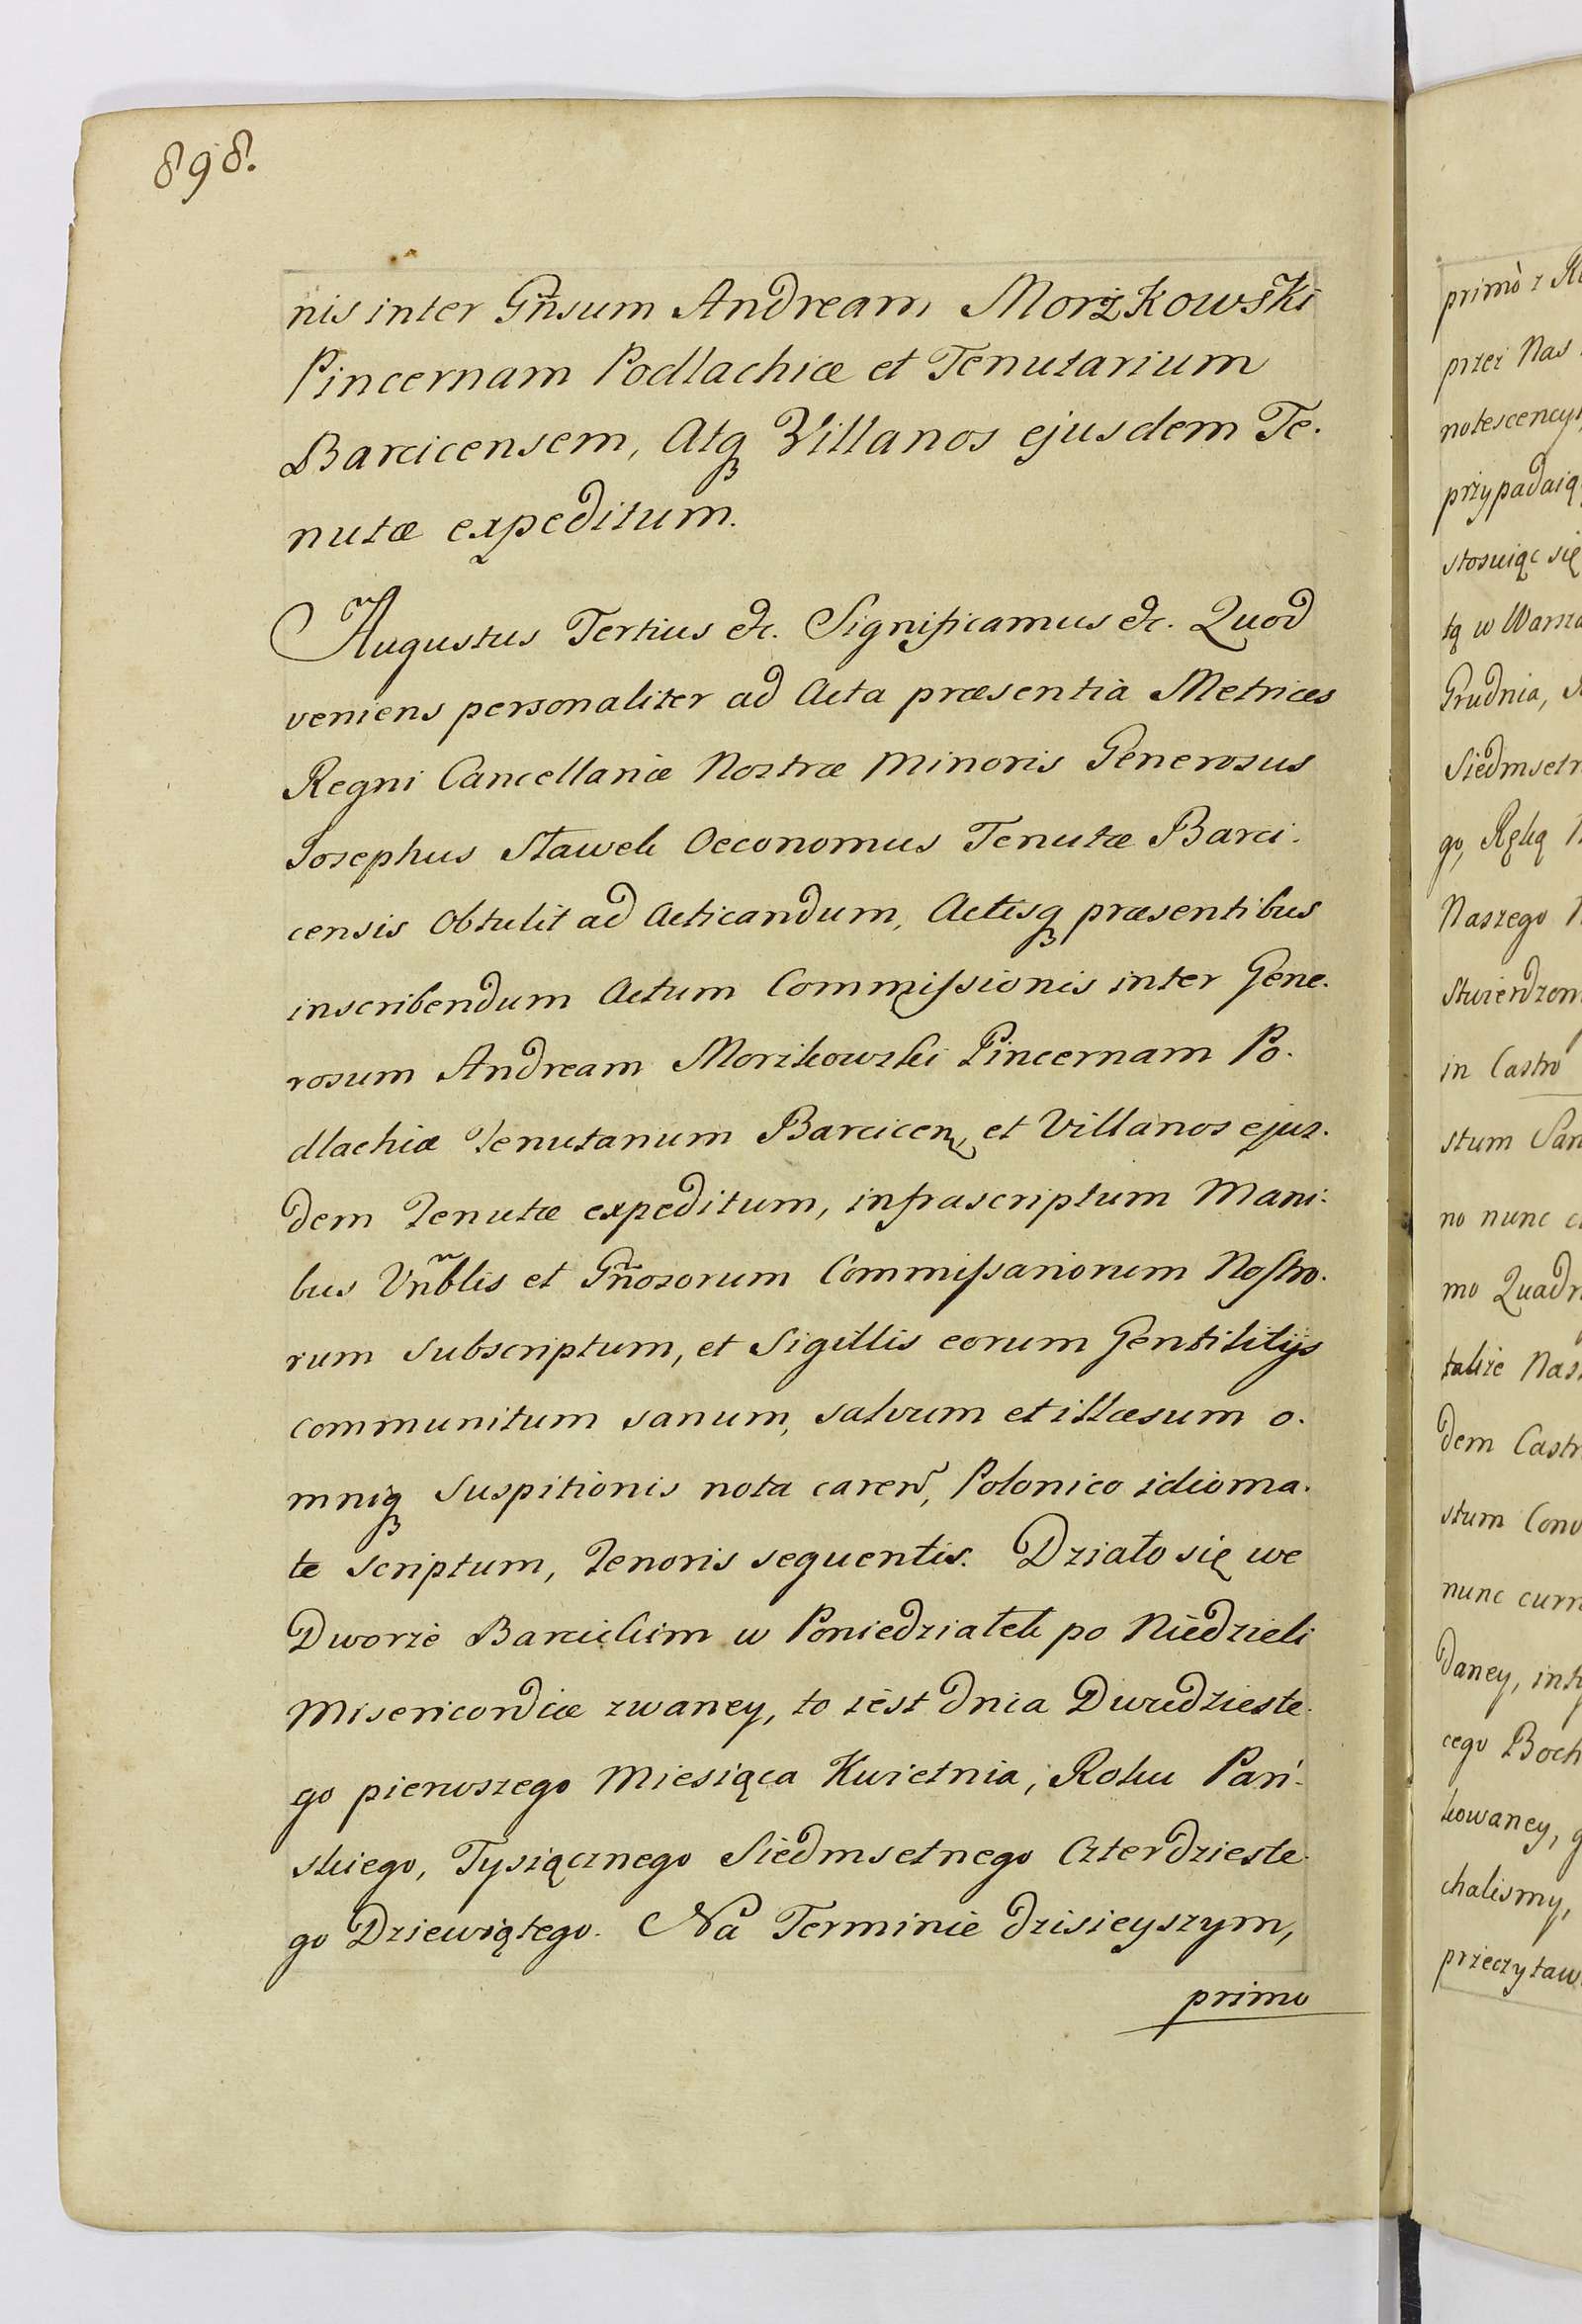 898.
nis inter Gñsum Andream Morżkowski
Pincernam Podlachiæ et Tenutarium
Barcicensem, Atqꝫ Villanos ejusdem Te.
nutæ expeditum.
Augustus Tertius &c. Significamus &c. Quod
veniens personaliter ad Acta præsentia Metrices
Regni Cancellariæ Nostræ Minoris Generosus
Josephus Stawek Oeconomus Tenutæ Barci.
censis Obtulit ad Acticandum, Actisqꝫ præsentibus
inscribendum Actum Commiſsionis inter Gene.
rosum Andream Morzkowski Pincernam Po.
dlachiæ Tenutarium Barcicen, et Villanos ejus.
dem Tenutæ expeditum, infrascriptum Mani.
bus Vñblis et Gñosorum Commiſsariorum Noſtro.
rum subscriptum, et Sigillis eorum Gentilitijs
communitum sanum, salvum et illæsum o.
mniqꝫ Suspitionis nota caren, Polonico idioma.
te scriptum, Tenoris sequentis. Działo się we
Dworze Barcickim w Poniedziałek po Niedzieli
Misericordiæ zwaney, to iest Dnia Dwudzieste.
go pierwszego Miesiąca Kwietnia, Roku Pań.
skiego, Tysiącznego Siedmsetnego Czterdzieste.
go Dziewiątego. Na Terminie dzisieyszym,
primo
primò z
przez Nas
notescency
przypadaią
stosuiąc się
tą w Warsza
Grudnia,
Siedmsetn
go, Ręką
Naszego
Stwierdzon
in Castro
stum San
no nunc
mo Quadr
także Nas
dem Castr
stum Conv
nunc curr
daney,
cego Boch
kowaney,
chalismy,
przeczytaw